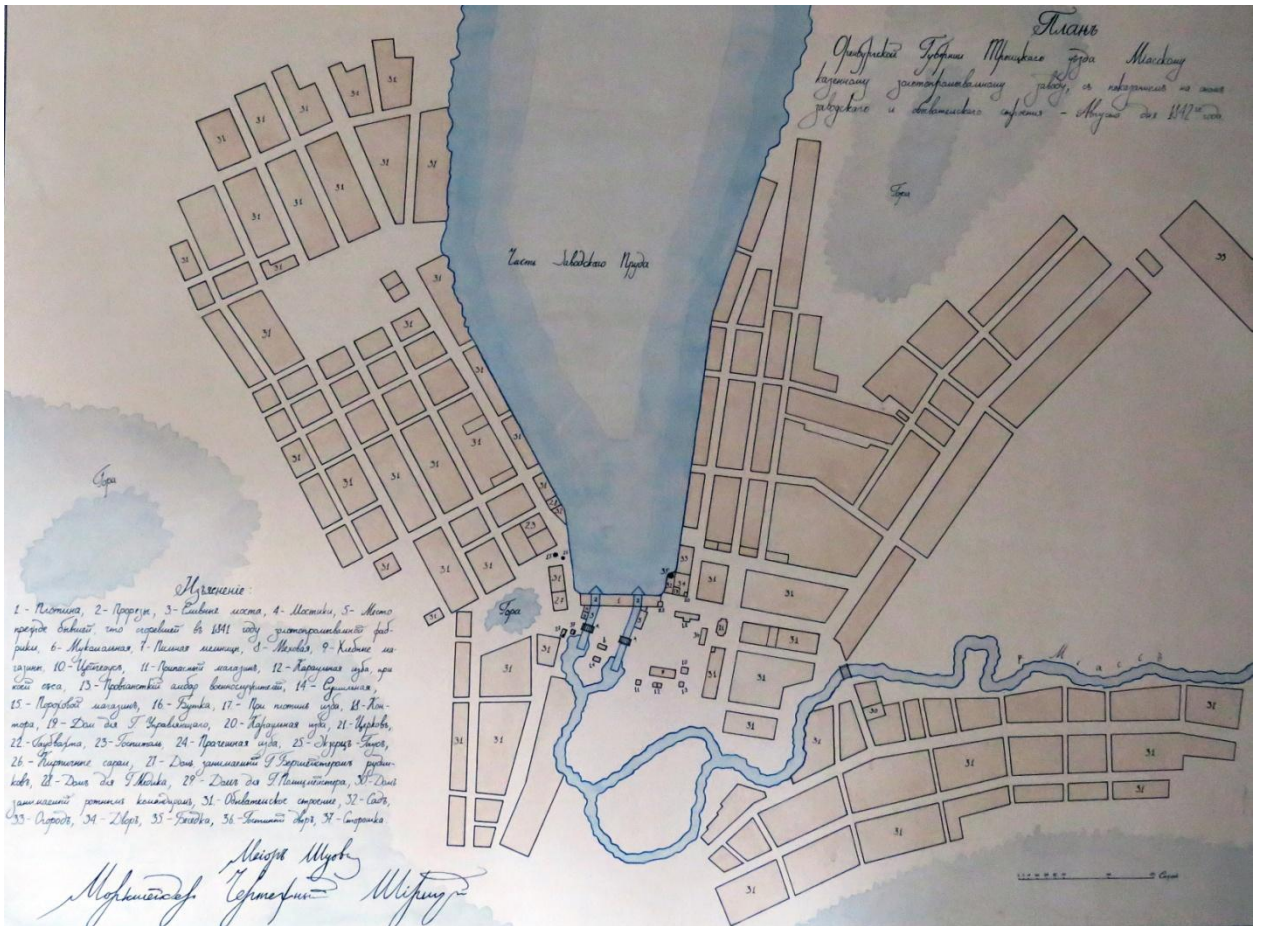 Планъ
Оренбургской Губернии Троицкаго уезда Миасскому
казенному золотопромываленному заводу, съ показаниемъ на ономъ
заводскаго и обывательскаго строения - Августа дня 1842го года.
Гора
Часть Заводскаго Пруда
Гора
Гора
р. Миассъ
Изъяснение:
1 - Плотина, 2 - Прорезы, 3 - моста, 4 - Мостики, 5 - Место
прежде бывшей, что сгоревшей въ 1841 году золотопромываленной фаб-
рики, 6 - Мукосильная, 7 - Пильная мельница, 8 - Меховая, 9 - Хлебные ма-
газины, 10 - Цейхгаузъ, 11 - Припасной магазинъ, 12 - Караульная изба, при
коей весы, 13 - Провиантский амбаръ военнослужителей, 14 - Сушильная,
15 - Пороховой магазинъ, 16 - Будка, 17 - При плотине изба, 18 - Кон-
тора, 19 - Домъ для Г. Управляющаго, 20 - Караульная изба, 21 - Церковь,
22 - Гаубвахта, 23 - Госпиталь, 24 - Прачешная изба, 25 - Гаузъ,
26 - Кирпичные сараи, 27 - Домъ занимаемый Г. Бергмейстеромъ рудни-
ковъ, 28 - Домъ для Г. Медика, 29 - Домъ для Г. Полицмейстера, 30 - Домъ
занимаемый ротнымъ командиромъ, 31 - Обывательское строение, 32 - Садъ,
33 - Огородъ, 34 - Дворъ, 35 - Беседка, 36 - Гостиный дворъ, 37 - Сторожка
Маиоръ
Маркшейдеръ
Сажен